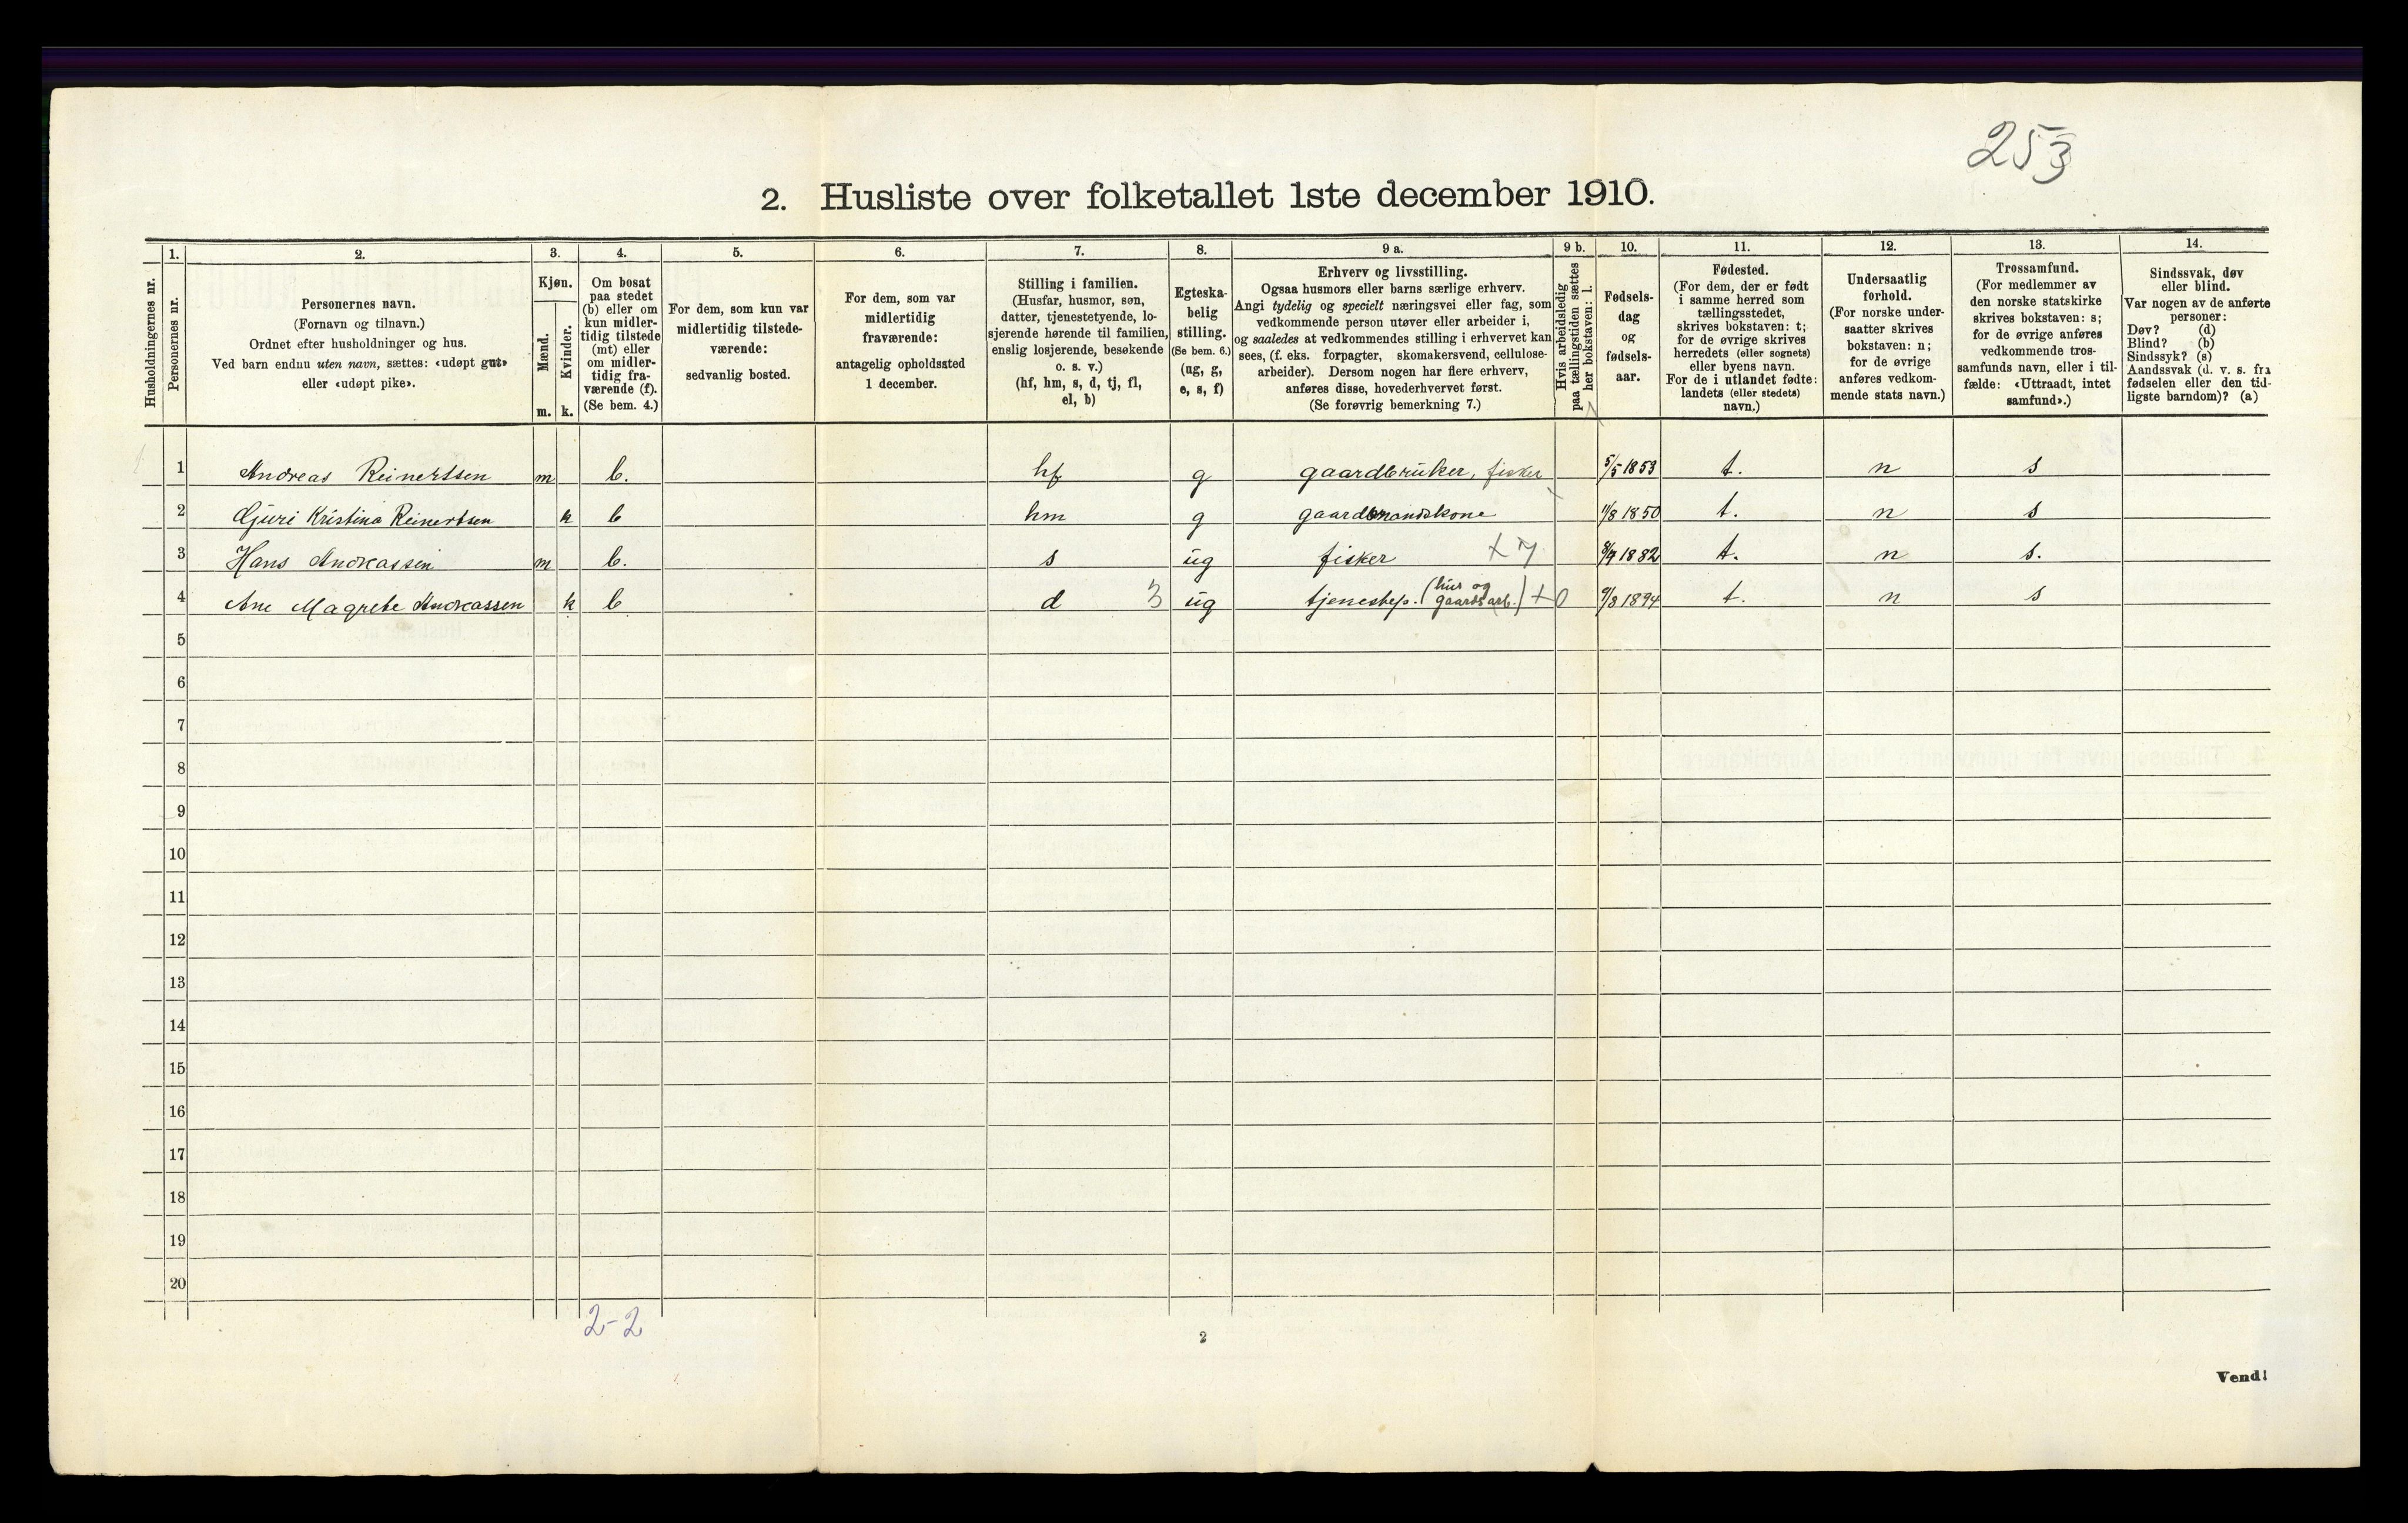 253
2. Husliste over folketallet 1ste december 1910.
Husholdningernes nr.
1.
Personernes nr.
2.
Personernes navn.
(Fornavn og tilnavn.)
Ordnet efter husholdninger og hus.
Ved barn endnu uten navn, sættes: «udøpt gut»
eller «udøpt pike».
3.
Kjøn.
Mænd.
Kvinder.
m. k.
4.
Om bosat
paa stedet
(b) eller om
kun midler-
tidig tilstede
(mt) eller
om midler-
tidig fra-
værende (f).
(Se bem. 4.)
5.
For dem, som kun var
midlertidig tilstede-
værende:
sedvanlig bosted.
6.
For dem, som var
midlertidig
fraværende:
antagelig opholdssted
1 december.
7.
Stilling i familien.
(Husfar, husmor, søn,
datter, tjenestetyende, lo-
sjerende hørende til familien,
enslig losjerende, besøkende
o. s. v.)
(hf, hm, s, d, tj, fl,
el, b)
8.
Egteska-
belig
stilling.
(Se bem. 6.)
(ug, g,
e, s, f)
9 a.
Erhverv og livsstilling.
Ogsaa husmors eller barns særlige erhverv.
Angi tydelig og specielt næringsvei eller fag, som
vedkommende person utøver eller arbeider i,
og saaledes at vedkommendes stilling i erhvervet kan
sees, (f. eks. forpagter, skomakersvend, cellulose-
arbeider). Dersom nogen har flere erhverv,
anføres disse, hovederhvervet først.
(Se forøvrig bemerkning 7.)
9 b.
Hvis arbeidsledig
paa tællingstiden sættes
her bokstaven: l.
10.
Fødsels-
dag
og
fødsels-
aar.
11.
Fødested.
(For dem, der er født
i samme herred som
tællingsstedet,
skrives bokstaven: t;
for de øvrige skrives
herredets (eller sognets)
eller byens navn.
For de i utlandet fødte:
landets (eller stedets)
navn.)
12.
Undersaatlig
forhold.
(For norske under-
saatter skrives
bokstaven: n;
for de øvrige
anføres vedkom-
mende stats navn.)
13.
Trossamfund.
(For medlemmer av
den norske statskirke
skrives bokstaven: s;
for de øvrige anføres
vedkommende tros-
samfunds navn, eller i til-
fælde: «Uttraadt, intet
samfund».)
14.
Sindssvak, døv
eller blind.
Var nogen av de anførte
personer:
Døv? (d)
Blind? (b)
Sindssyk? (s)
Aandssvak (d. v. s. fra
fødselen eller den tid-
ligste barndom)? (a)
1 Andreas Reinertsen m b. hf g gaardbruker, fisker 5/5 1853 t. n s
2 Gjuri Kristina Reinertsen k b hm g gaardmandskone 1850 t. n s
3 Hans Andreassen m b. s ug fisker 1882 t. n s.
4 Ane Magrete Andreassen k b d 3 ug tjenestep. (hus og gaards arb.) +0 9/8 1894 t. n s
5
6
7
8
9
10
11
12
13
14
15
16
17
18
19
20
2-2
2
Vend!